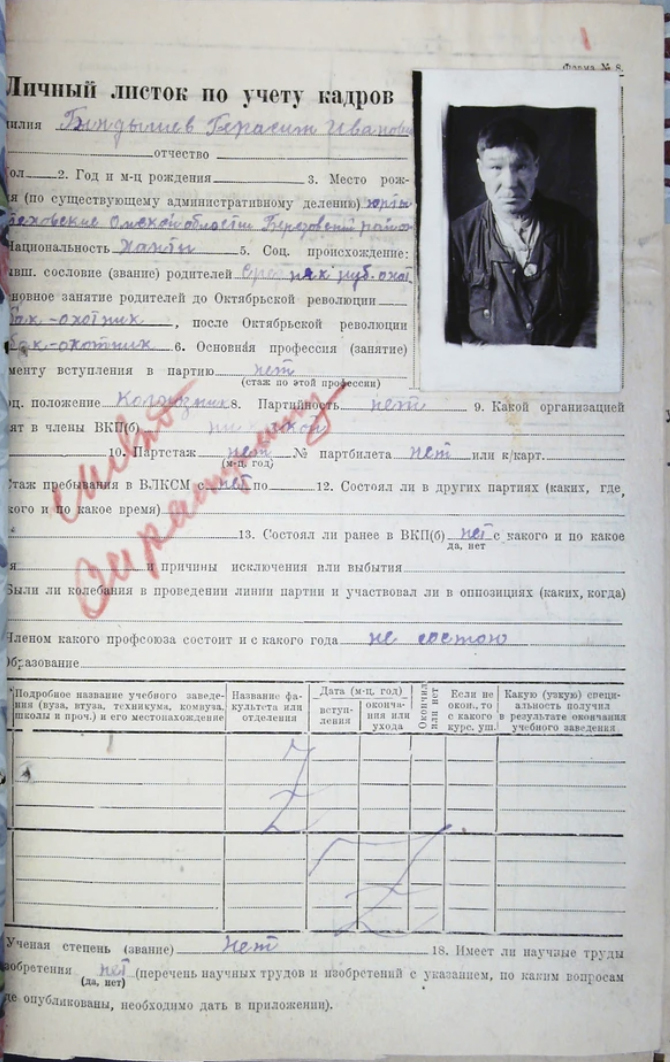 1
Форма № 8.
Личный листок по учету кадров
илия Герасим Иванович
отчество
2. Год и м-ц рождения 3. Место рож-
я (по существующему административному делению) юрты
Омской области Березовский района
Национальность Ханты 5. Соц. происхождение:
ывш. сословие (звание) родителей рыб. охот.
новное занятие родителей до Октябрьской революции
бак-охотник, после Октябрьской революции
бак-охотник 6. Основная профессия (занятие)
менту вступления в партию нет
(стаж по этой профессии)
оц. положение Колхозник 8. Партийность нет 9. Какой организацией
ят в члены ВКП(б)
10. Партстаж нет № партбилета нет или к/карт.
(м-ц, год)
Стаж пребывания в ВЛКСМ с нет по 12. Состоял ли в других партиях (каких, где,
кого и по какое время)
13. Состоял ли ранее в ВКП(б) нет с какого и по какое
да, нет
я и причины исключения или выбытия
Были ли колебания в проведении линии партии и участвовал ли в оппозициях (каких, когда)
Членом какого профсоюза состоит и с какого года не состою
Образование
Подробное название учебного заведе-
ния (вуза, втуза, техникума, комвуза,
школы и проч.) и его местонахождение
Название фа-
культета или
отделения
Дата (м-ц, год)
вступ-
ления
оконча-
ния или
ухода
Окончил
или нет
Если не
окон., то
с какого
курс. уш.
Какую (узкую) специ-
альность получил
в результате окончания
учебного заведения
Z
Z
Ученая степень (звание) нет 18. Имеет ли научные труды
зобретения нет (перечень научных трудов и изобретений с указанием, по каким вопросам
(да, нет)
де опубликованы, необходимо дать в приложении).